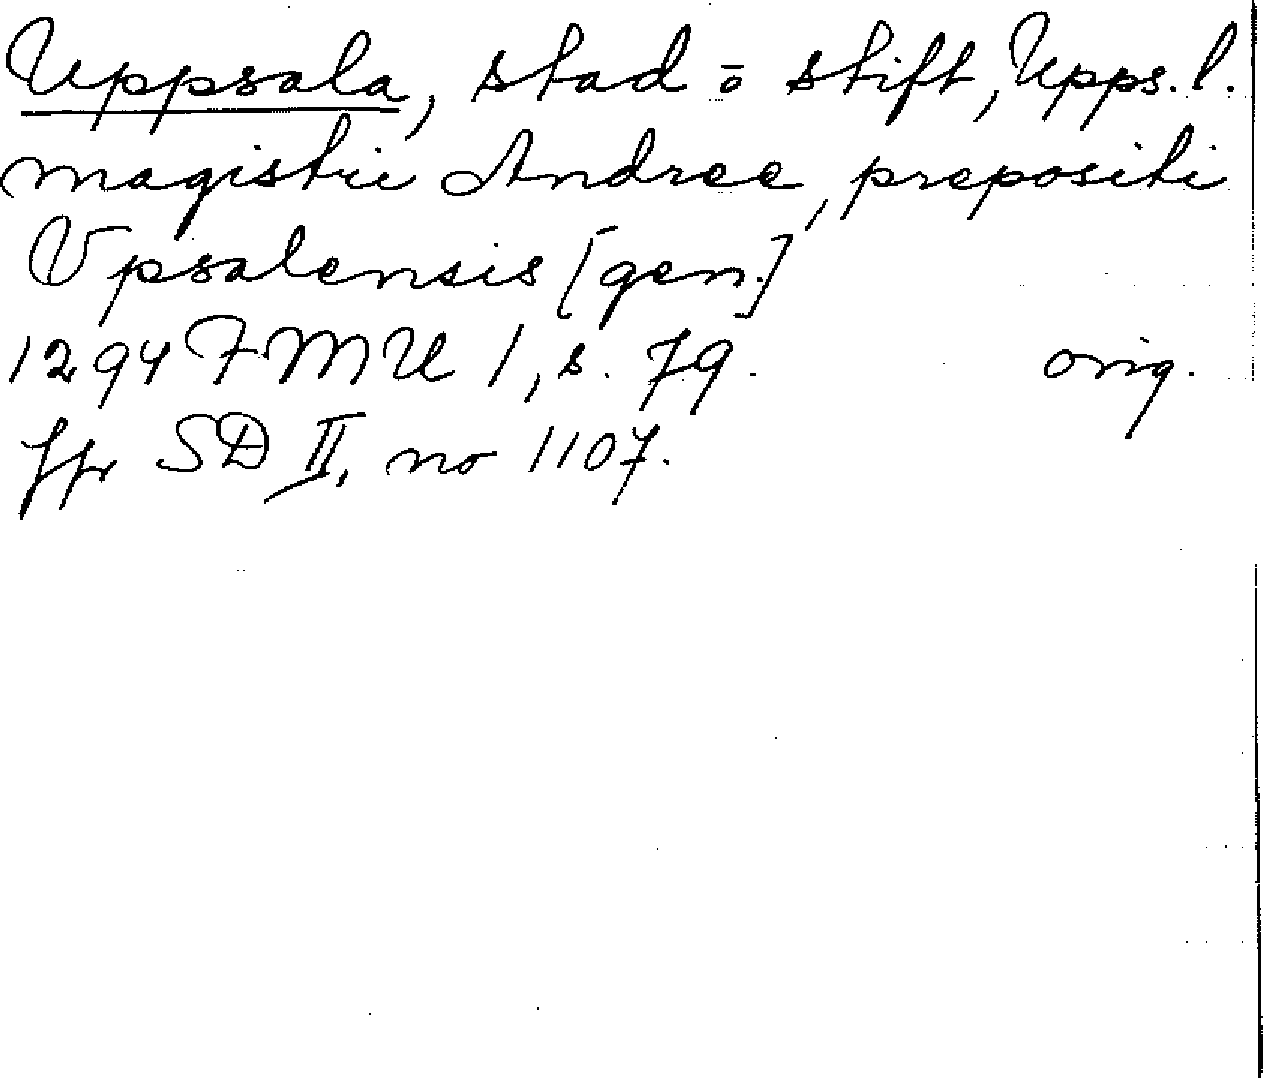 Uppsala, stad o stift, Upps. l.
magistri Andree, prepositi
Vpsalensis [gen.]
1294 FMU 1, s. 79. orig.
Jfr SD II, no 1107.